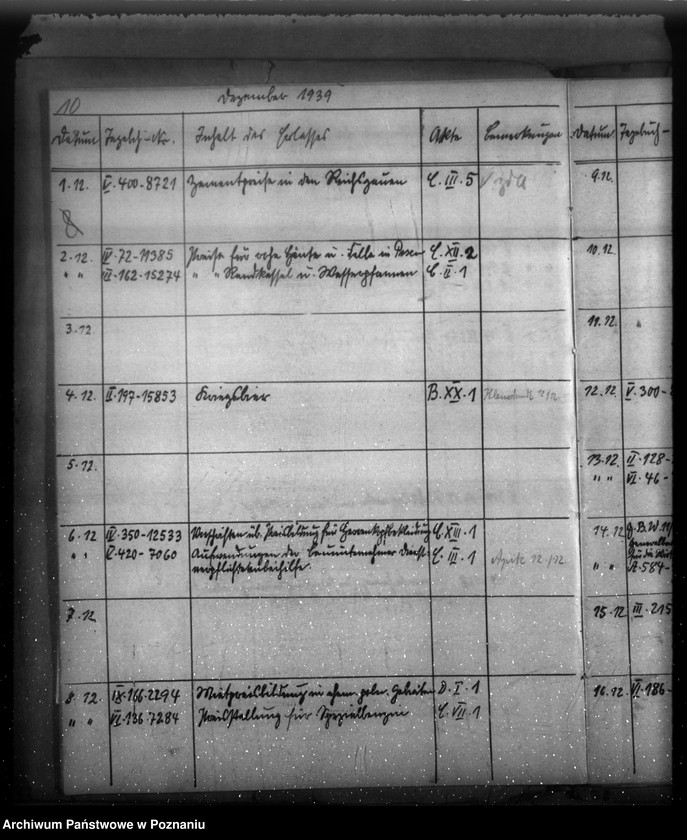 10
Dezember 1939
Datum Tagebch.-Nr. Inhalt des Erlasses Akte Bemerkungen Datum Tagebuch-
1.12. V.400-8721 Zementpreise in den Reichsgauen C.III.5 9.12.
2.12. IV.72-11385 Preise für rohe Häute u. Felle in Posen C.XII.2 10.12.
" " VI.162-15274 " " Rundkessel u. Wasserpfannen C.II.1
3.12. 11.12.
4.12. II.197-15853 Kriegsbier B.XX.1 12.12. V.300-
5.12. 13.12. II.128-
" " VI.46-
6.12 IV.350-12533 Vorschriften üb. Preisbildung für C.XIII.1 14.12
" " V.420-7060 Aufwendungen der Bauunternehmer C.III.1 12/12.
" " A.584-
7.12 15.12 III.215
8.12. IX.166-2294 Mietpreisbildung in ehem. poln. Gebieten D.I.1 16.12. VI.186-
" " VI.136-7284 Preisstellung für Spezialbenzin C.VII.1
Archiwum Państwowe w Poznaniu